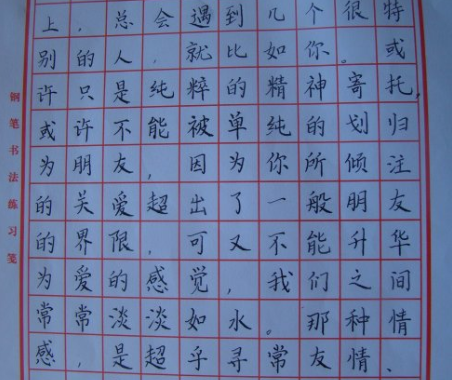 上，总会遇到几个很特
别的人，就比如你。或
许只是纯粹的精神寄托。
或许不能被单纯的划归
为朋友，因为你所倾注
的关爱超出了一般朋友
的界限，可又不能升华
为爱的感觉，我们之间
常常淡淡如水。那种情
感，是超乎寻常友情、
钢笔书法练习笺